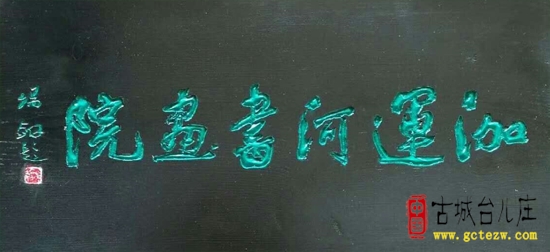 泇運河書畫院
古城台儿庄
www.gctezw.com